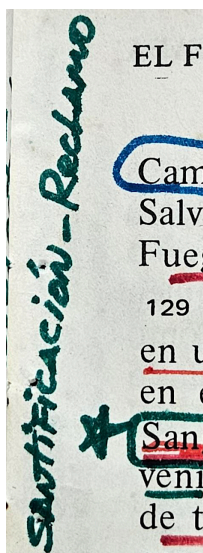 Santificación - Reclamo
EL F
Cam
Salv
Fueg
129
en u
en e
San
veni
de t